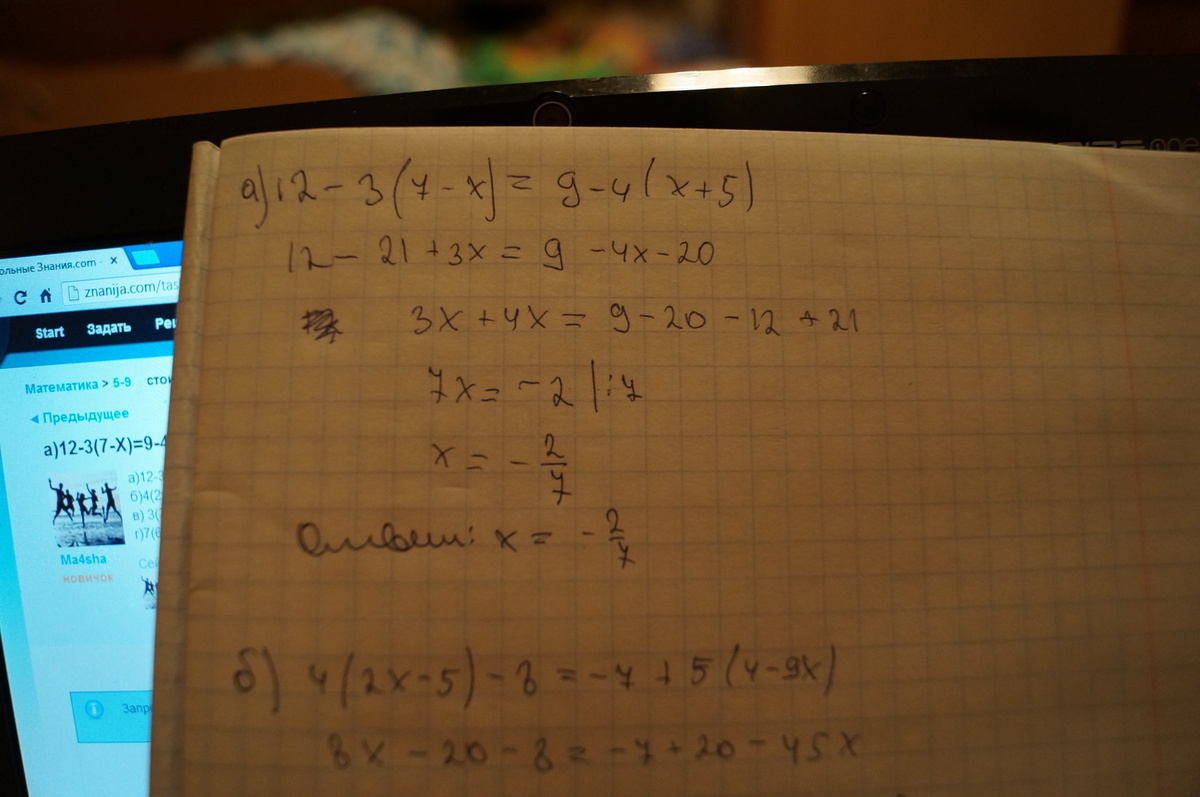 а) 12 - 3(7 - x) = 9 - 4(x + 5)
12 - 21 + 3x = 9 - 4x - 20
3x + 4x = 9 - 20 - 12 + 21
7x = -2 |:7
x = - 2/7
Ответ: x = - 2/7
б) 4(2x - 5) - 8 = -7 + 5(4 - 9x)
8x - 20 - 8 = -7 + 20 - 45x
ольные Знания.com -
znanija.com/tas
Start Задать Реш
Математика > 5-9 стои
Предыдущее
а)12-3(7-Х)=9-4
а)12-3
б)4(2
в) 3(
г)7(6
Ma4sha
новичок
Запр